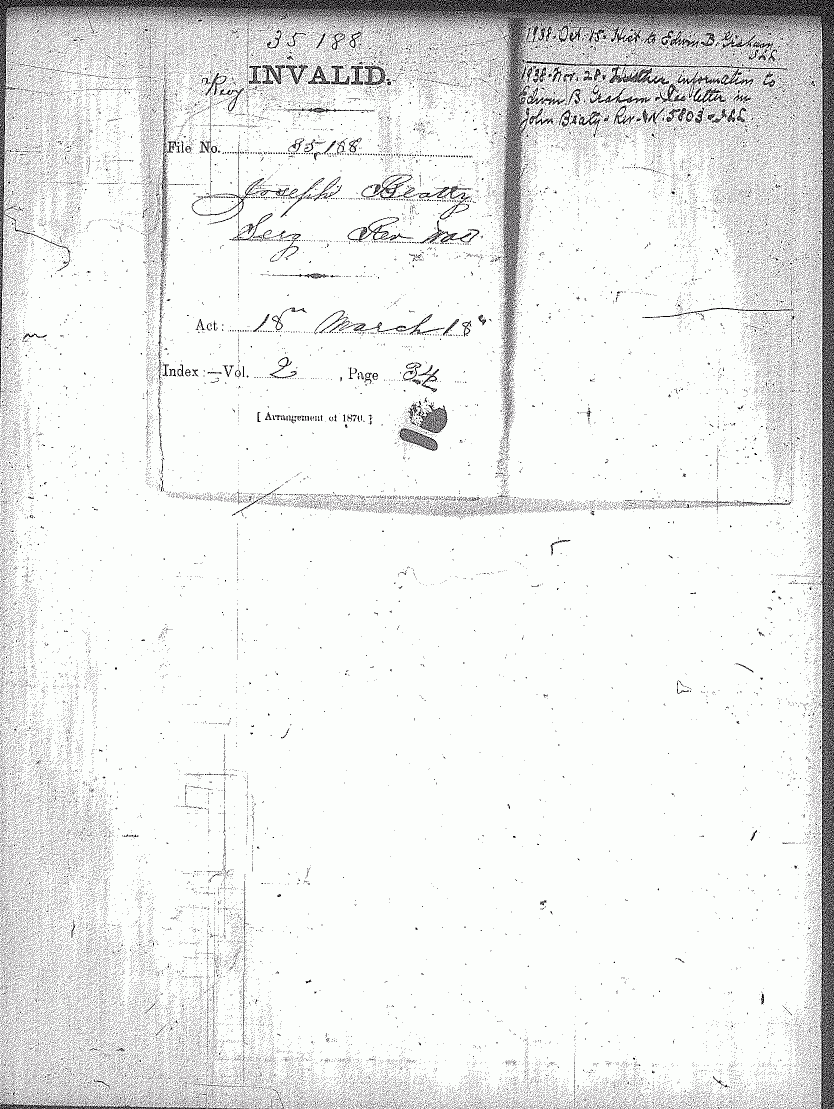 35188
Rev
INVALID.
File No. 35,188
Joseph Beatty
Serg Rev War
Act: 18th March 18
Index :—Vol. 2 , Page 34
[ Arrangement of 1870. ]
1938-Oct. 15- Hist to Edwin B. Graham
1938-Nov. 28- Further information to
Edwin B. Graham - See letter in
John Beaty - Rev. W. 5803